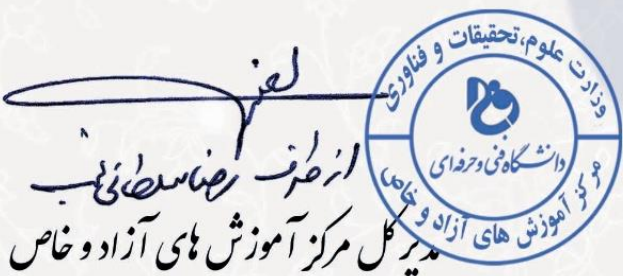 وزارت علوم، تحقیقات و فناوری
دانشگاه فنی و حرفه‌ای
مرکز آموزش های آزاد و خاص
از طرف رضا سلطانی
مدیر کل مرکز آموزش های آزاد و خاص